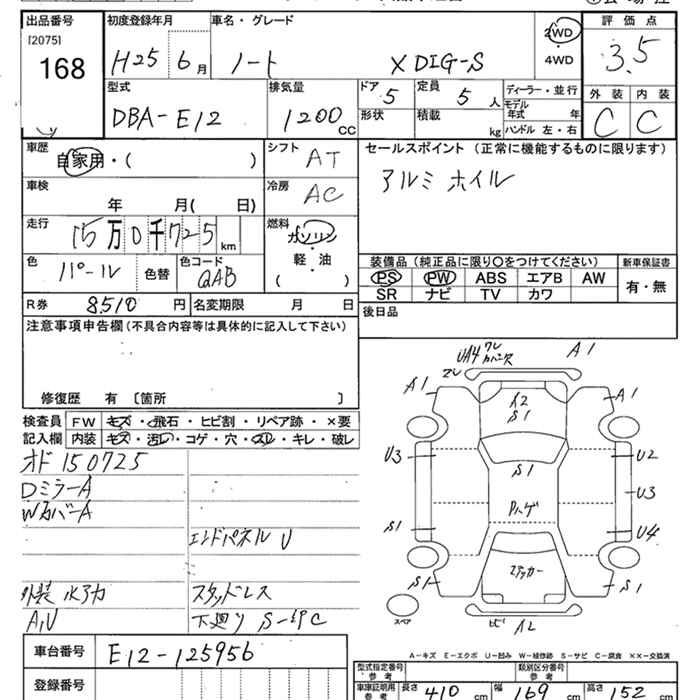 出品番号 初度登録年月 車名・グレード 評価点
[2075]
168 H25 6月 ノート X DIG-S 2WD・4WD 3.5
型式 排気量 ドア 5 定員 5 人 ディーラー・並行 外装 内装
DBA-E12 1200 CC 形状 積載 kg モデル年式 年 C C
ハンドル 左・右
車歴 自家用・( ) シフト AT セールスポイント(正常に機能するものに限ります)
車検 年 月( 日) 冷房 AC アルミホイル
走行 15万0千725km 燃料 ガソリン 軽・油 ( )
色 パール 色替 色コード QAB 装備品(純正品に限り○をつけてください) 新車保証書
PS PW ABS エアB AW 有・無
SR ナビ TV カワ
R券 8510 円 名変期限 月 日 後日品
注意事項申告欄(不具合内容等は具体的に記入して下さい)
修復歴 有 〔箇所 〕
検査員 FW キズ・飛石・ヒビ割・リペア跡・×要
記入欄 内装 キズ・汚レ・コゲ・穴・スレ・キレ・破レ
オド150725
DミラーA
WカバーA
エンドパネルU
外装 水アカ スタッドレス
A,U 下廻り S-錆C
車台番号 E12-125956
登録番号
UA4 ワレ A1
ズレ
A1 A2 A1
S1
U3 S1 U2
Pハゲ U3
S1 U4
ステッカー
S1 S1
スペア ビ A2
A-キズ E-エクボ U-凹み W-補修跡 S-サビ C-腐食 XX-交換済
型式指定番号 参考 類別区分番号 参考
車庫証明用 参考 長さ 410 cm 幅 169 cm 高さ 152 cm